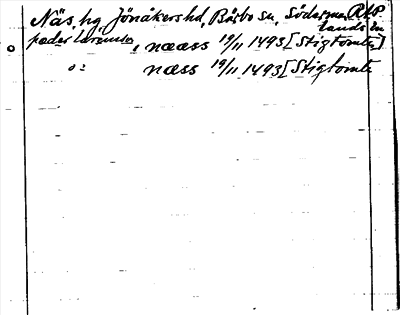 Näs, hg Jönåkers hd, Bärbo sn, Söderman RAP
lands län
peder larensson, næass 19/11 1493 [Stigtomta]
o: næss 19/11 1493 [Stigtomta